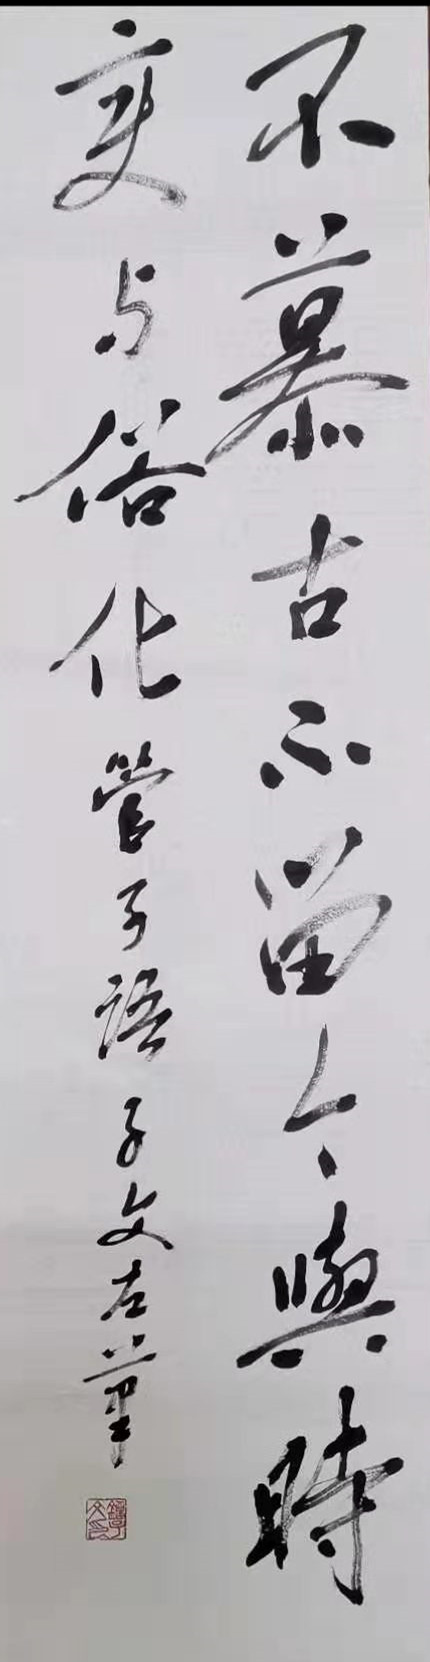 不慕古不留今與時
变与俗化管子語子文左筆